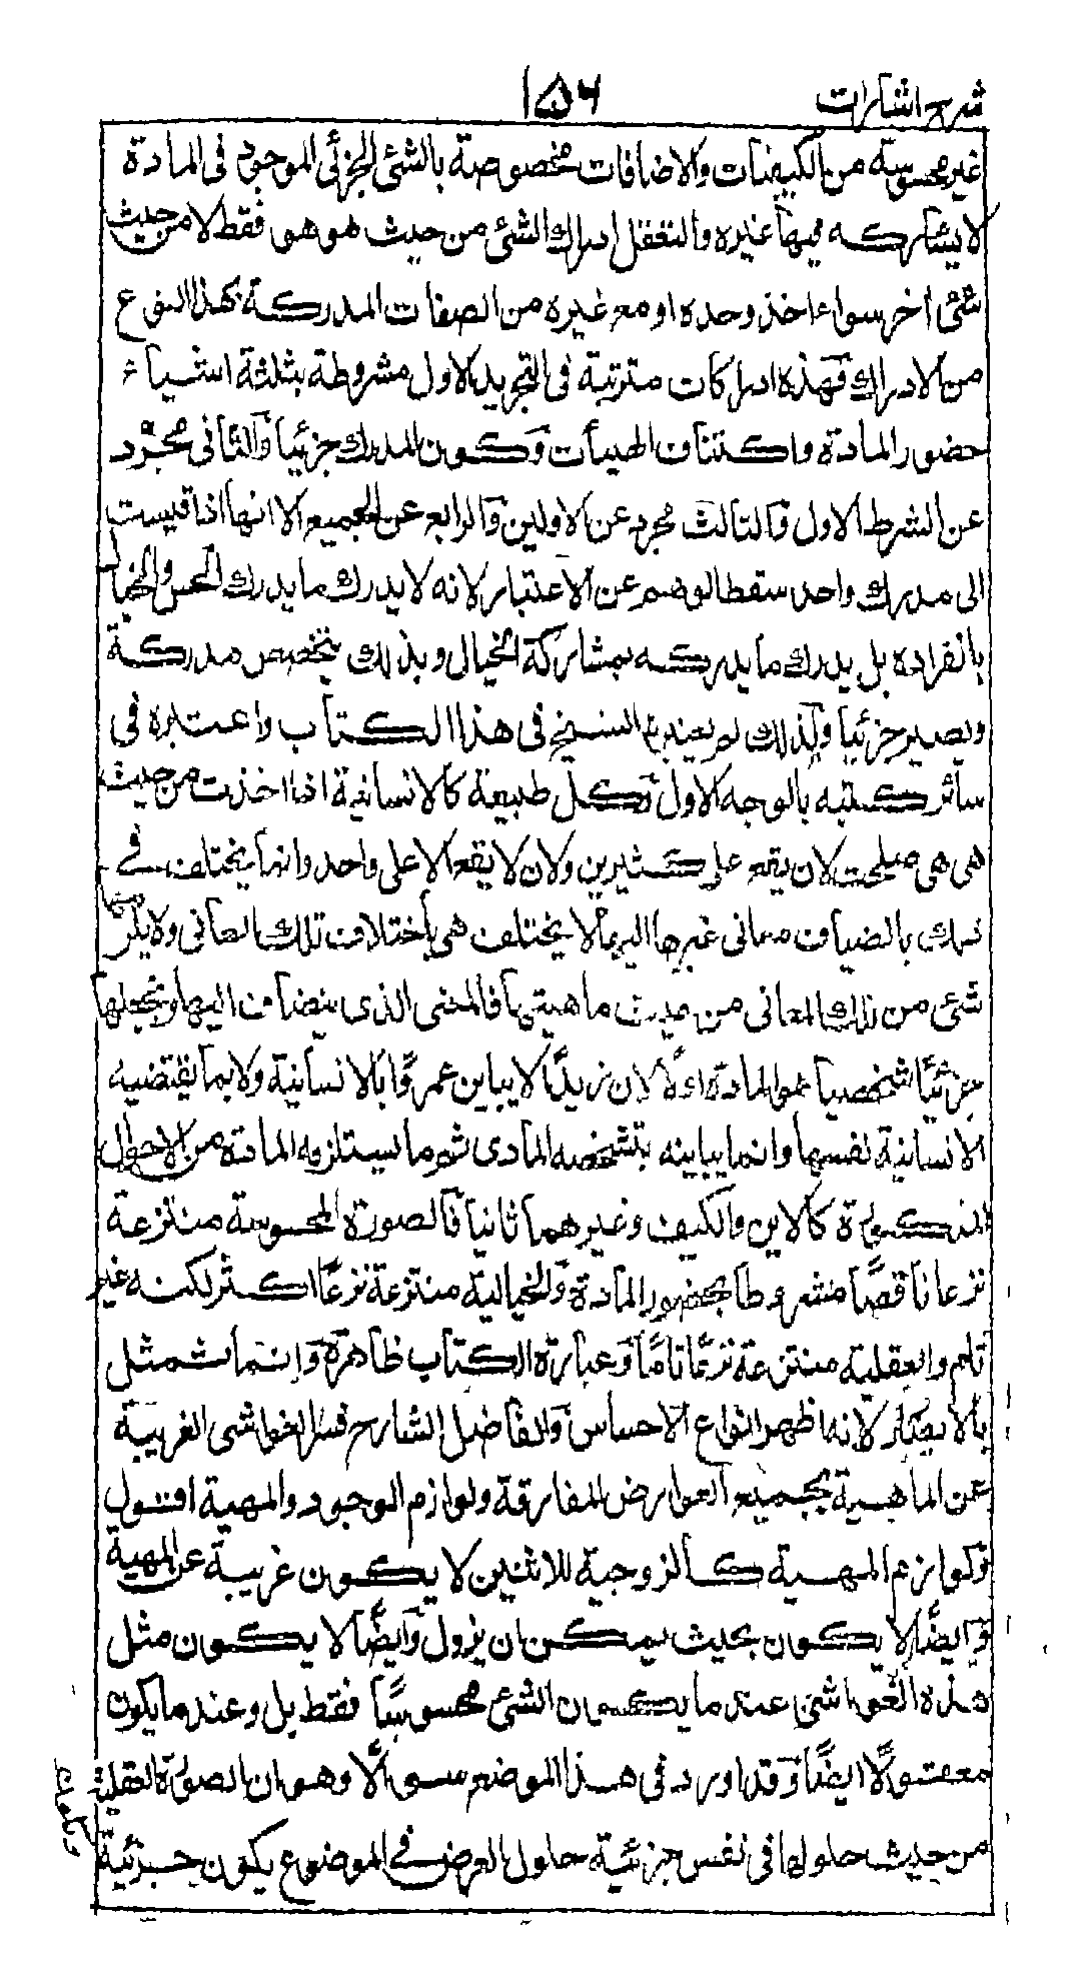 شرح اشارات
١٥٦
غير محسوسة من الكيفيات والاضافات مخصوصة بالشئ الجزئى الموجود فى المادة
لا يشاركه فيها غيره والتعقل ادراك الشئ من حيث هو هو فقط لا من حيث
شئ اخر سواء اخذ وحده او مع غيره من الصفات المدركة بهذا النوع
من الادراك فهذه ادراكات مترتبة فى التجريد الاول مشروطة بثلثة اشياء
حضور المادة واكتناف الهيأت وكون المدرك جزئيا والثانى مجرد
عن الشرط الاول والثالث مجرد عن الاولين والرابع عن الجميع الا انها اذا قيست
الى مدرك واحد سقط الوهم عن الاعتبار لانه لا يدرك ما يدرك الحس والخيال
بانفراده بل يدرك ما يدركه بمشاركة الخيال وبذلك يتخصص مدركة
ويصير جزئيا ولذلك لم يعتبره الشيخ فى هذا الكتاب واعتبره فى
سائر كتبه بالوجه الاول وكل طبيعة كالانسانية اذا اخذت من حيث
هى هى صلحت لان يقع على كثيرين ولان لا يقع الا على واحد وانما يختلف فى
ذلك بانضياف معانى غيرها اليها لا يختلف هى باختلاف تلك المعانى ولا يلزمها
شئ من تلك المعانى من حيث ماهيتها فالمعنى الذى ينضاف اليها ويجعلها
جزئيا شخصيا هو المادة اولا لان زيدا لا يباين عمروا بالانسانية ولا بما يقتضيه
الانسانية نفسها وانما يباينه بتشخصه المادى ثم ما يستلزمه المادة من الاحوال
المذكورة كالاين والكيف وغيرهما ثانيا فالصورة المحسوسة منتزعة
نزعا ناقصا مشروطا بحضور المادة والخيالية منتزعة نزعا اكثر لكنه غير
تام والعقلية منتزعة نزعا تاما وعبارة الكتاب ظاهرة وانما تمثل
بالابصار لانه اظهر انواع الاحساس والفاضل الشارح فسر الغواشى الغريبة
عن الماهية بجميع العوارض المفارقة ولوازم الوجود والمهية اقول
ولوازم المهية كالزوجية للاثنين لا يكون غريبة عن المهية
وايضا لا يكون بحيث يمكن ان يزول وايضا لا يكون مثل
هذه الغواشى عند ما يكون الشئ محسوسا فقط بل وعند ما يكون
معقولا ايضا وقد اورد فى هذا الموضع سوالا وهو ان الصورة العقلية
من حيث حلولها فى نفس جزئية حلول العرض فى الموضوع يكون جزئية